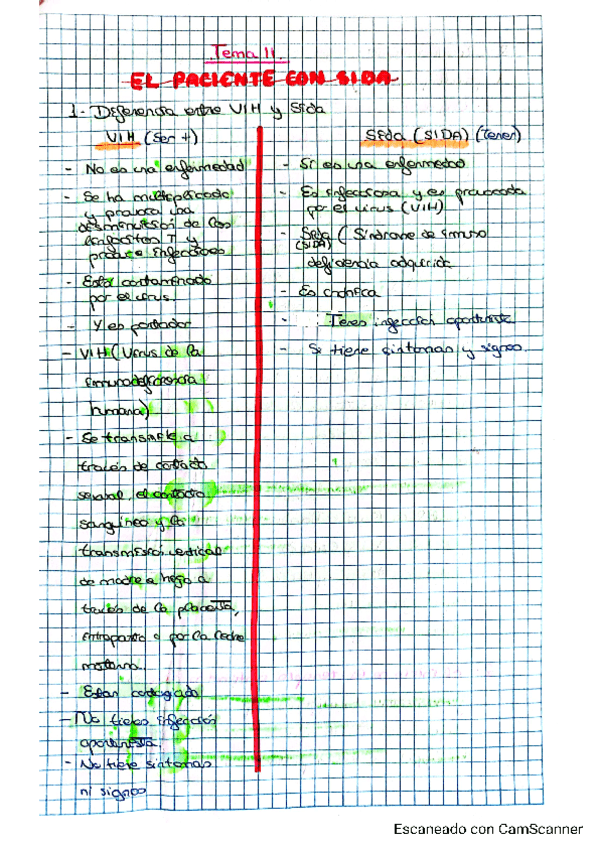 Tema 11.
EL PACIENTE CON SIDA
1- Diferencia entre VIH y Sida
VIH (Ser +)
- No es una enfermedad
- Se ha multiplicado
y provoca una
de los
linfocitos T y
produce infecciones
- Esta contaminado
por el virus.
- Y es portador
- VIH (Virus de la
inmunodeficiencia
humana)
- Se transmite a
través de contacto
sexual, el contacto
sanguíneo y la
transmisión vertical
de madre a hijo a
través de la placenta,
intraparto o por la leche
materna.
- Estan contagiado
- No tienes infección
oportunista.
- No tiene síntomas
ni signos
Sida (SIDA) (Tener)
- Si es una enfermedad
- Es infecciosa y es provocada
por el virus (VIH)
- Sida (Síndrome de inmuno
(SIDA)
deficiencia adquirida
- Es crónica
- Tienes infección oportunista
- Si tiene síntomas y signos.
Escaneado con CamScanner